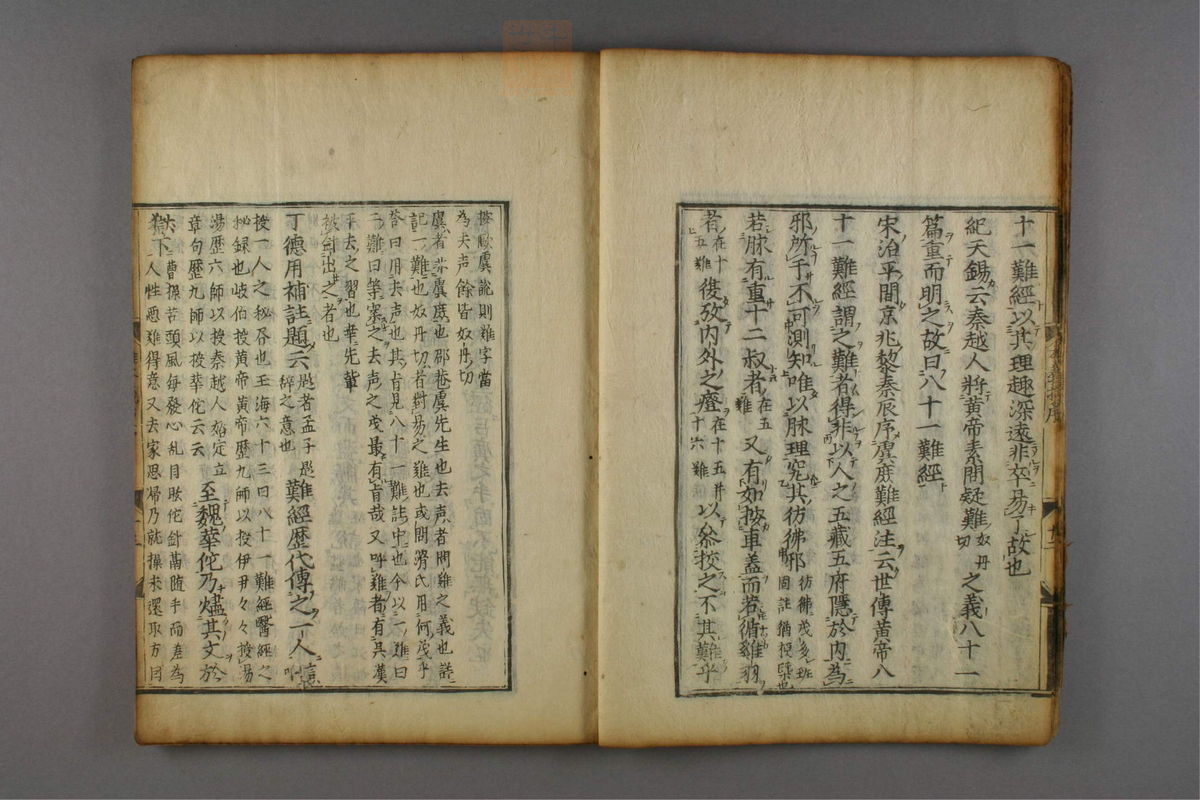 十一難經以其理趣深遠非卒易了故也
紀天錫云秦越人將黃帝素問疑難奴丹切之義八十一
篇重而明之故曰八十一難經
宋治平間京兆黎泰辰序虞庶難經注云世傳黃帝八
十一難經謂之難者得非以人之五藏五府隱於内為
邪所干不可測知唯以脉理究其彷彿邪
若脉有重十二菽者在五難又有如按車蓋而若循雞羽
者在十五難復攷内外之證在十五并十六難以叅挍之不其難乎
按歐虞說則難字當
為去声餘皆奴丹切
虞者
記一難也奴丹切者對易之難也或問滑氏用何
答曰用去声也其旨見八十一難
二難曰等寀之去声之義最有旨哉又呼難者有具漢
乎去之習也華先輩
披劍出
丁德用補註題云是者孟子是辞之意也難經歷代傳之一人
授一人之秘吞也玉海六十三曰八十一難經醫經之
秘録也岐伯授黃帝黃帝歷九師以授伊尹々々授湯
湯歷六師以授秦越人始定立
章句歷九師以授華佗云云至魏華佗乃燼其文於
曹操苦頭風每發心乱目眩佗針鬲随手而差為
人性惡難得意又去家思歸乃就操求還取方因